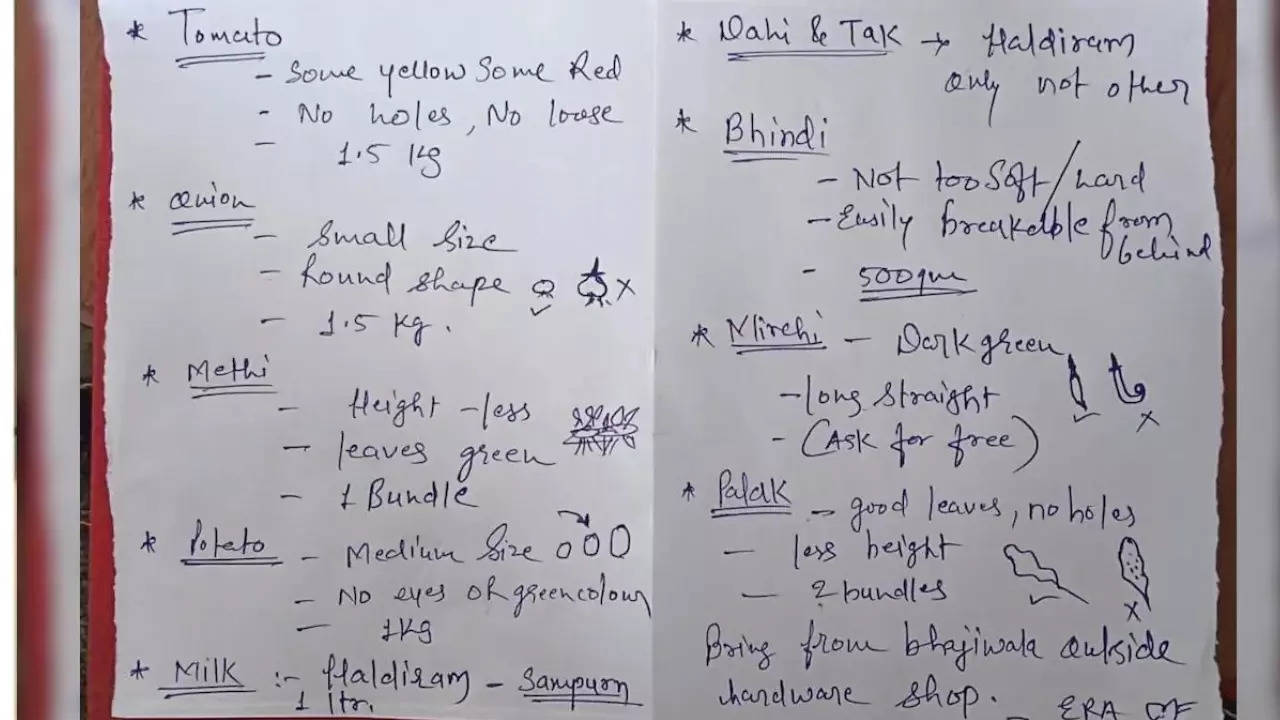 * Tomato
- Some yellow Some Red
- No holes, No loose
- 1.5 Kg
* Onion
- Small size
- Round shape
- 1.5 Kg.
* Methi
- Height - less
- leaves green
- 1 Bundle
* Potato - Medium Size
- No eyes or green colour
- 1 Kg
* Milk :- Haldiram - Sampurn
1 ltr.
* Dahi & Tak → Haldiram
only not other
* Bhindi
- Not too soft/hard
- Easily breakable from
behind
- 500gm
* Mirchi - Dark green
- long straight
- (Ask for free)
* Palak - good leaves, no holes
- less height
- 2 bundles
Bring from bhajiwala outside
hardware shop.
- ERA OF